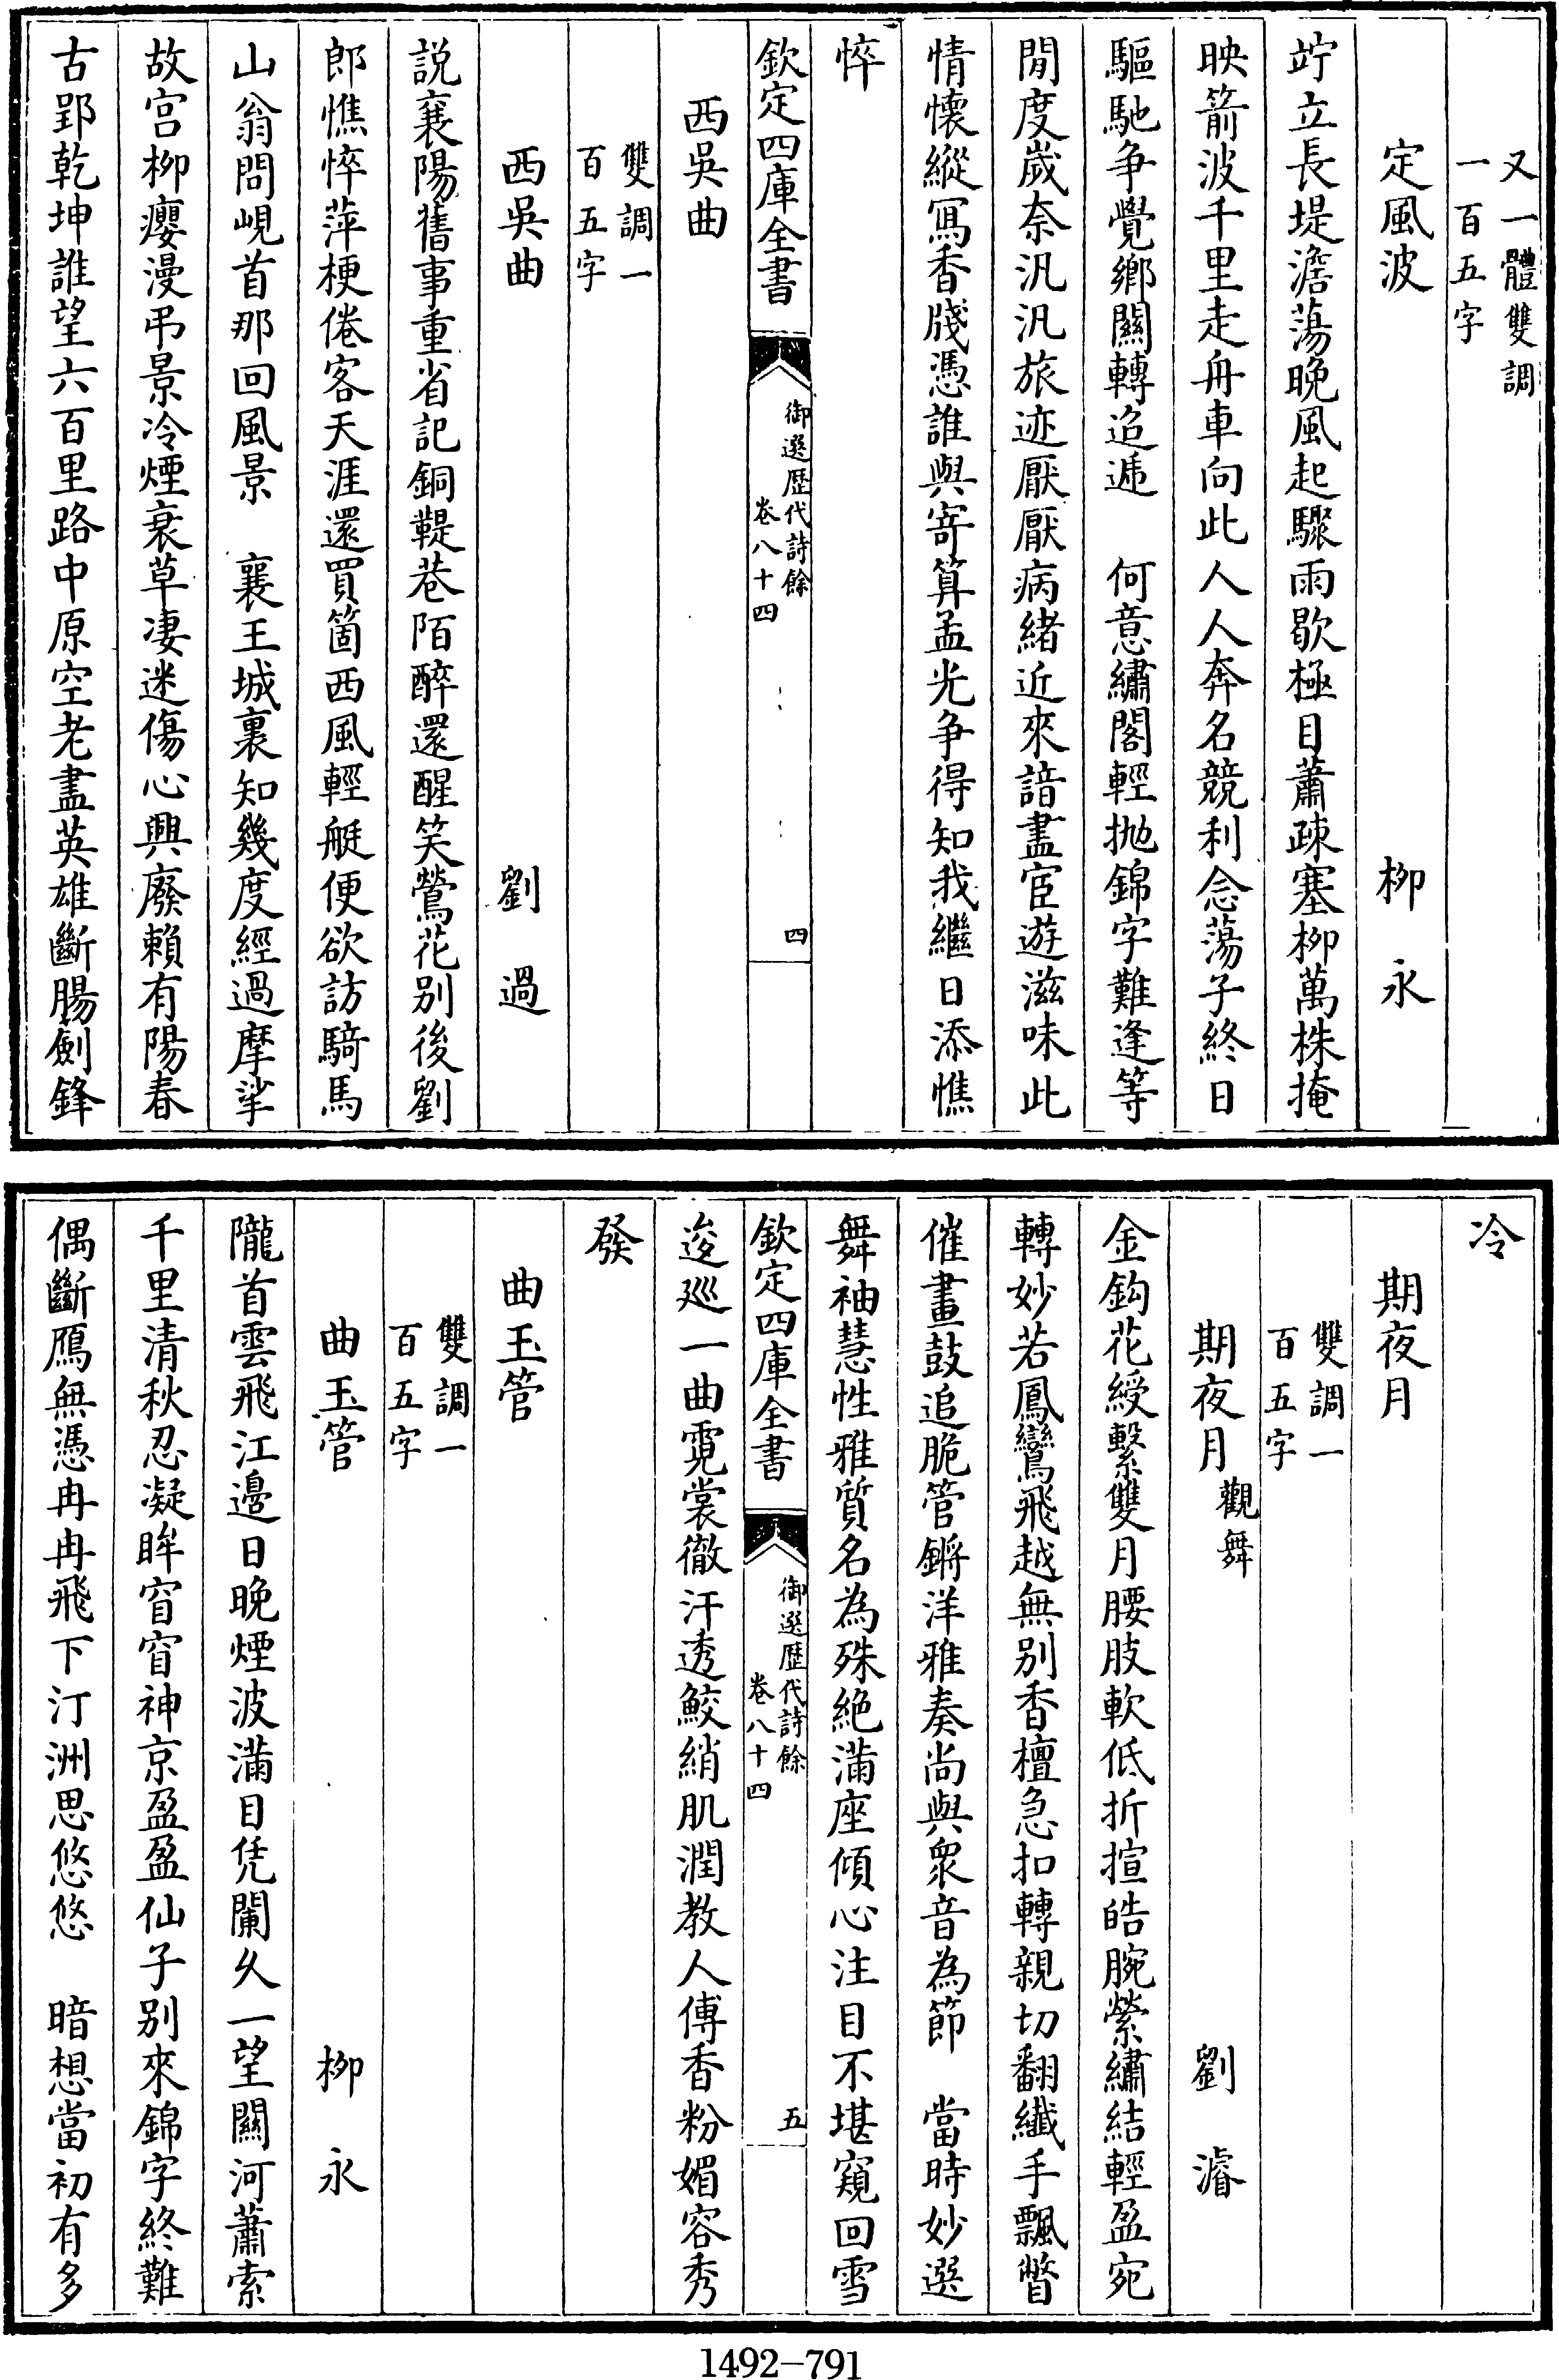 又一體雙調
一百五字
定風波　柳永
竚立長堤澹蕩晚風起驟雨歇極目蕭疎塞柳萬株掩
映箭波千里走舟車向此人人奔名競利念蕩子終日
驅馳争覺鄉關轉迢遞　何意繡閣輕抛錦字難逢等
閒度嵗奈汎汎旅迹厭厭病緒近來諳盡宦遊滋味此
情懷縱冩香牋憑誰與寄算孟光争得知我繼日添憔
悴
欽定四庫全書
御選歷代詩餘
卷八十四
四
西吳曲
雙調一
百五字
西吳曲　劉過
說襄陽舊事重省記銅鞮巷陌醉還醒笑鶯花别後劉
郎憔悴萍梗倦客天涯還買箇西風輕艇便欲訪騎馬
山翁問峴首那回風景　襄王城裏知幾度經過摩挲
故宫柳癭漫弔景冷煙衰草凄迷傷心興廢賴有陽春
古郢乾坤誰望六百里路中原空老盡英雄斷腸劍鋒
冷
期夜月
雙調一
百五字
期夜月觀舞　劉濬
金鈎花綬繫雙月腰肢軟低折揎皓腕縈繡結輕盈宛
轉妙若鳳鸞飛越無别香檀急扣轉親切翻纎手飄瞥
催畫鼓追脆管鏘洋雅奏尚與衆音為節　當時妙選
舞袖慧性雅質名為殊絶滿座傾心注目不堪窺回雪
欽定四庫全書
御選歷代詩餘
卷八十四
五
逡廵一曲霓裳徹汗透鮫綃肌潤教人傅香粉媚容秀
發
曲玉管
雙調一
百五字
曲玉管　柳永
隴首雲飛江邊日晚煙波滿目凭闌久一望關河蕭索
千里清秋忍凝眸窅窅神京盈盈仙子别來錦字終難
偶斷鴈無憑冉冉飛下汀洲思悠悠　暗想當初有多
1492—791